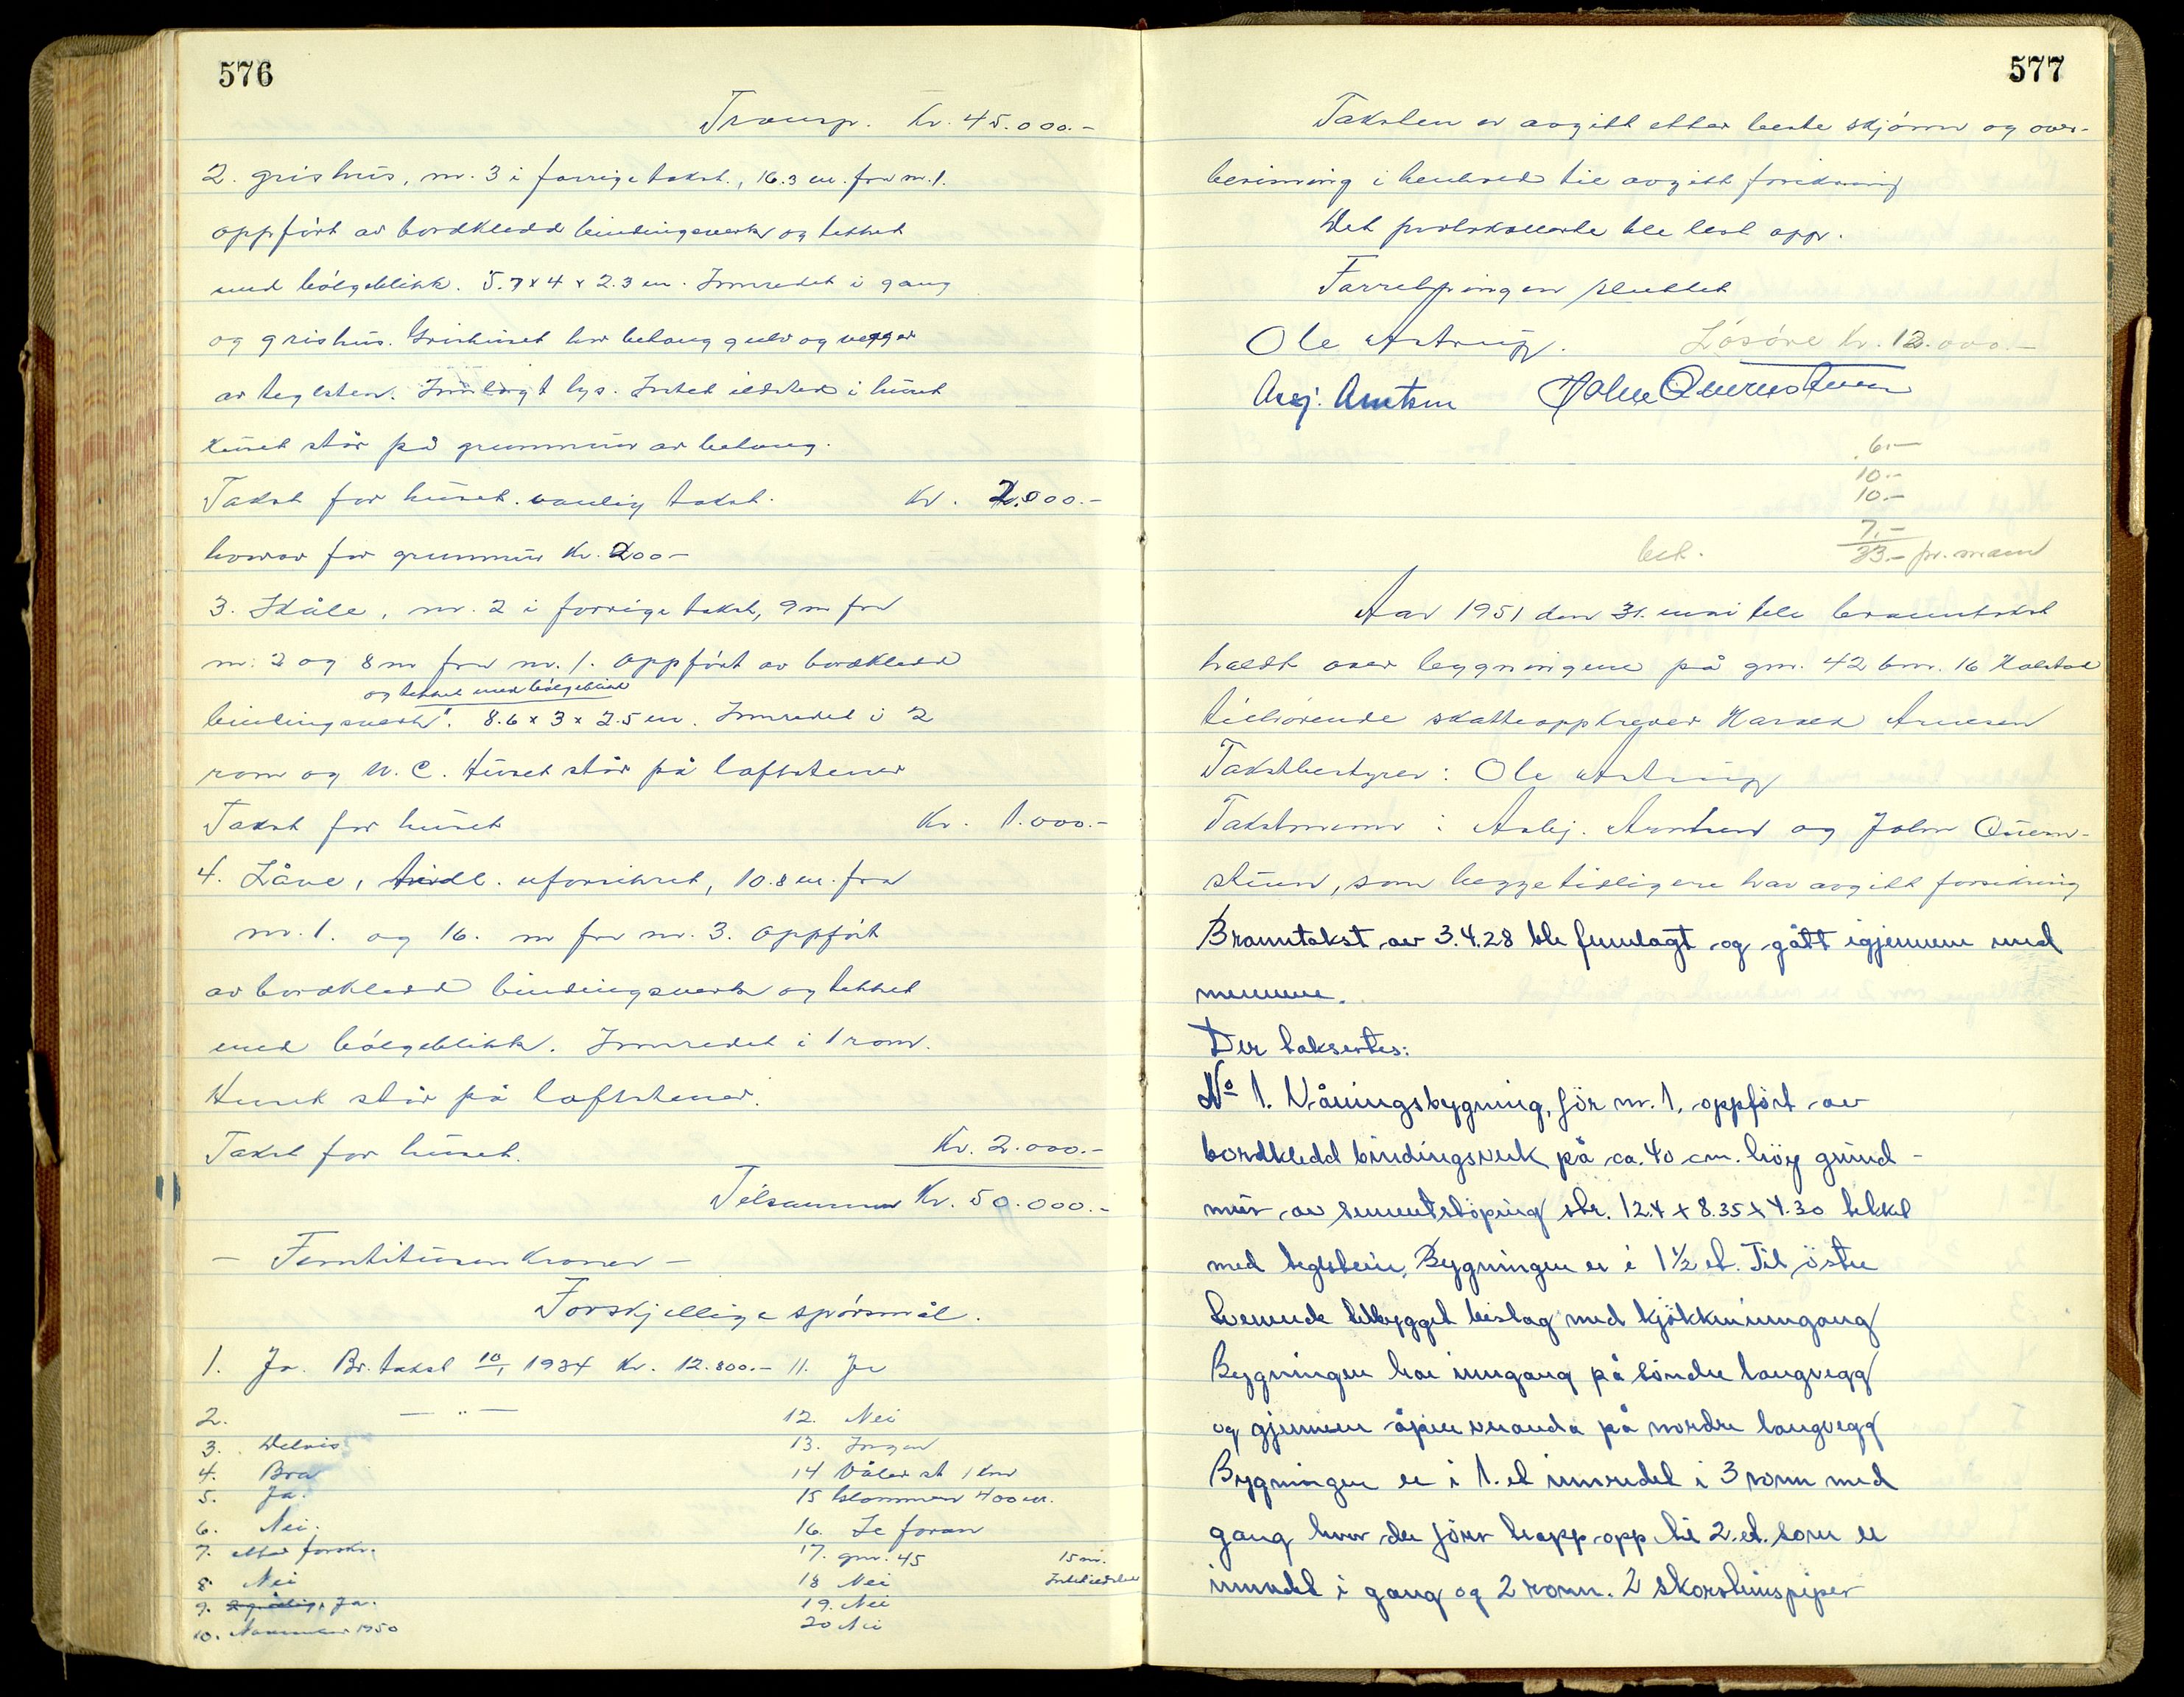 576
Transp. Kr. 45.000.-
2. grishus, nr. 3 i forrige takst, 16.3 m. fra nr. 1.
oppført av bordkledd bindingsverk og tekket
med bølgeblikk. 5.7 x 4 x 2.3 m. Innredet i gang
og grishus. Grishuset har betong gulv og vegger
av teglsten. Innlagt lys. Intet ildsted i huset
Huset står på grunnmur av betong.
Takst for huset. vanlig takst. Kr. 2.000.-
hvorav for grunnmur Kr. 200-
3. Skåle, nr. 2 i forrige takst, 9 m fra
nr. 2 og 8 m fra nr. 1. Oppført av bordkledd
og tekket med bølgeblikk
bindingsverk. 8.6 x 3 x 2.5 m. Innredet i 2
rom og W.C. Huset står på loftstener
Takst for huset Kr. 1.000.-
4. Låve, tidl. uforsikret, 10.8 m. fra
nr. 1. og 16. m fra nr. 3. Oppført
av bordkledd bindingsverk og tekket
med bølgeblikk. Innredet i 1 rom.
Huset står på loftstener.
Takst for huset. Kr. 2.000.-
Tilsammen Kr. 50.000.-
- Femtitusen kroner -
Forskjellige spørsmål.
1. Ja. Br. takst 10/1 1934 Kr. 12.800.- 11. Ja
2. — " — 12. Nei
3. Delvis 13. Ingen
4. Bra 14 Våler st 1 km
5. Ja. 15 Glommen 400 m.
6. Nei. 16. Se foran
7. etter forskr. 17. gnr. 45 15 m.
8. Nei 18 Nei Intet ildsted
9. Ja. 19. Nei
10. November 1950 20 Nei
577
Taksten er avgitt etter beste skjønn og over-
bevisning i henhold til avgitt forsikring
Det protokollerte ble lest opp.
Forretningen sluttet
Ole Astrup. Løsøre Kr. 12.000.-
Asbj. Arntsen John Quernstuen
6.-
10.-
10.-
7.-
bet. 33.- pr. mann
Aar 1951 den 31. mai ble branntakst
holdt over bygningene på gnr. 42 bnr. 16 Halstad
tilhørende skatteoppkrever Harald Arnesen
Takstbestyrer: Ole Astrup
Takstmenn: Asbj. Arntsen og John Quern-
stuen, som begge tidligere har avgitt forsikring
Branntakst av 3.4.28 ble fremlagt og gått igjennem med
mennene.
Der taksertes:
No 1. Våningsbygning, før nr. 1, oppført av
bordkledd bindingsverk på ca. 40 cm. høy grund-
mur av sementstøping str. 12.4 x 8.35 x 4.30 tekket
med teglstein. Bygningen er i 1 1/2 et. Til østre
tverrende tilbygget bislag med kjøkkeninngang
Bygningen har inngang på søndre langvegg
og gjennem åpen veranda på nordre langvegg
Bygningen er i 1. et innredet i 3 rom med
gang hvor der fører trapp opp til 2. et. som er
innredet i gang og 2 rom. 2 skorsteinspiper